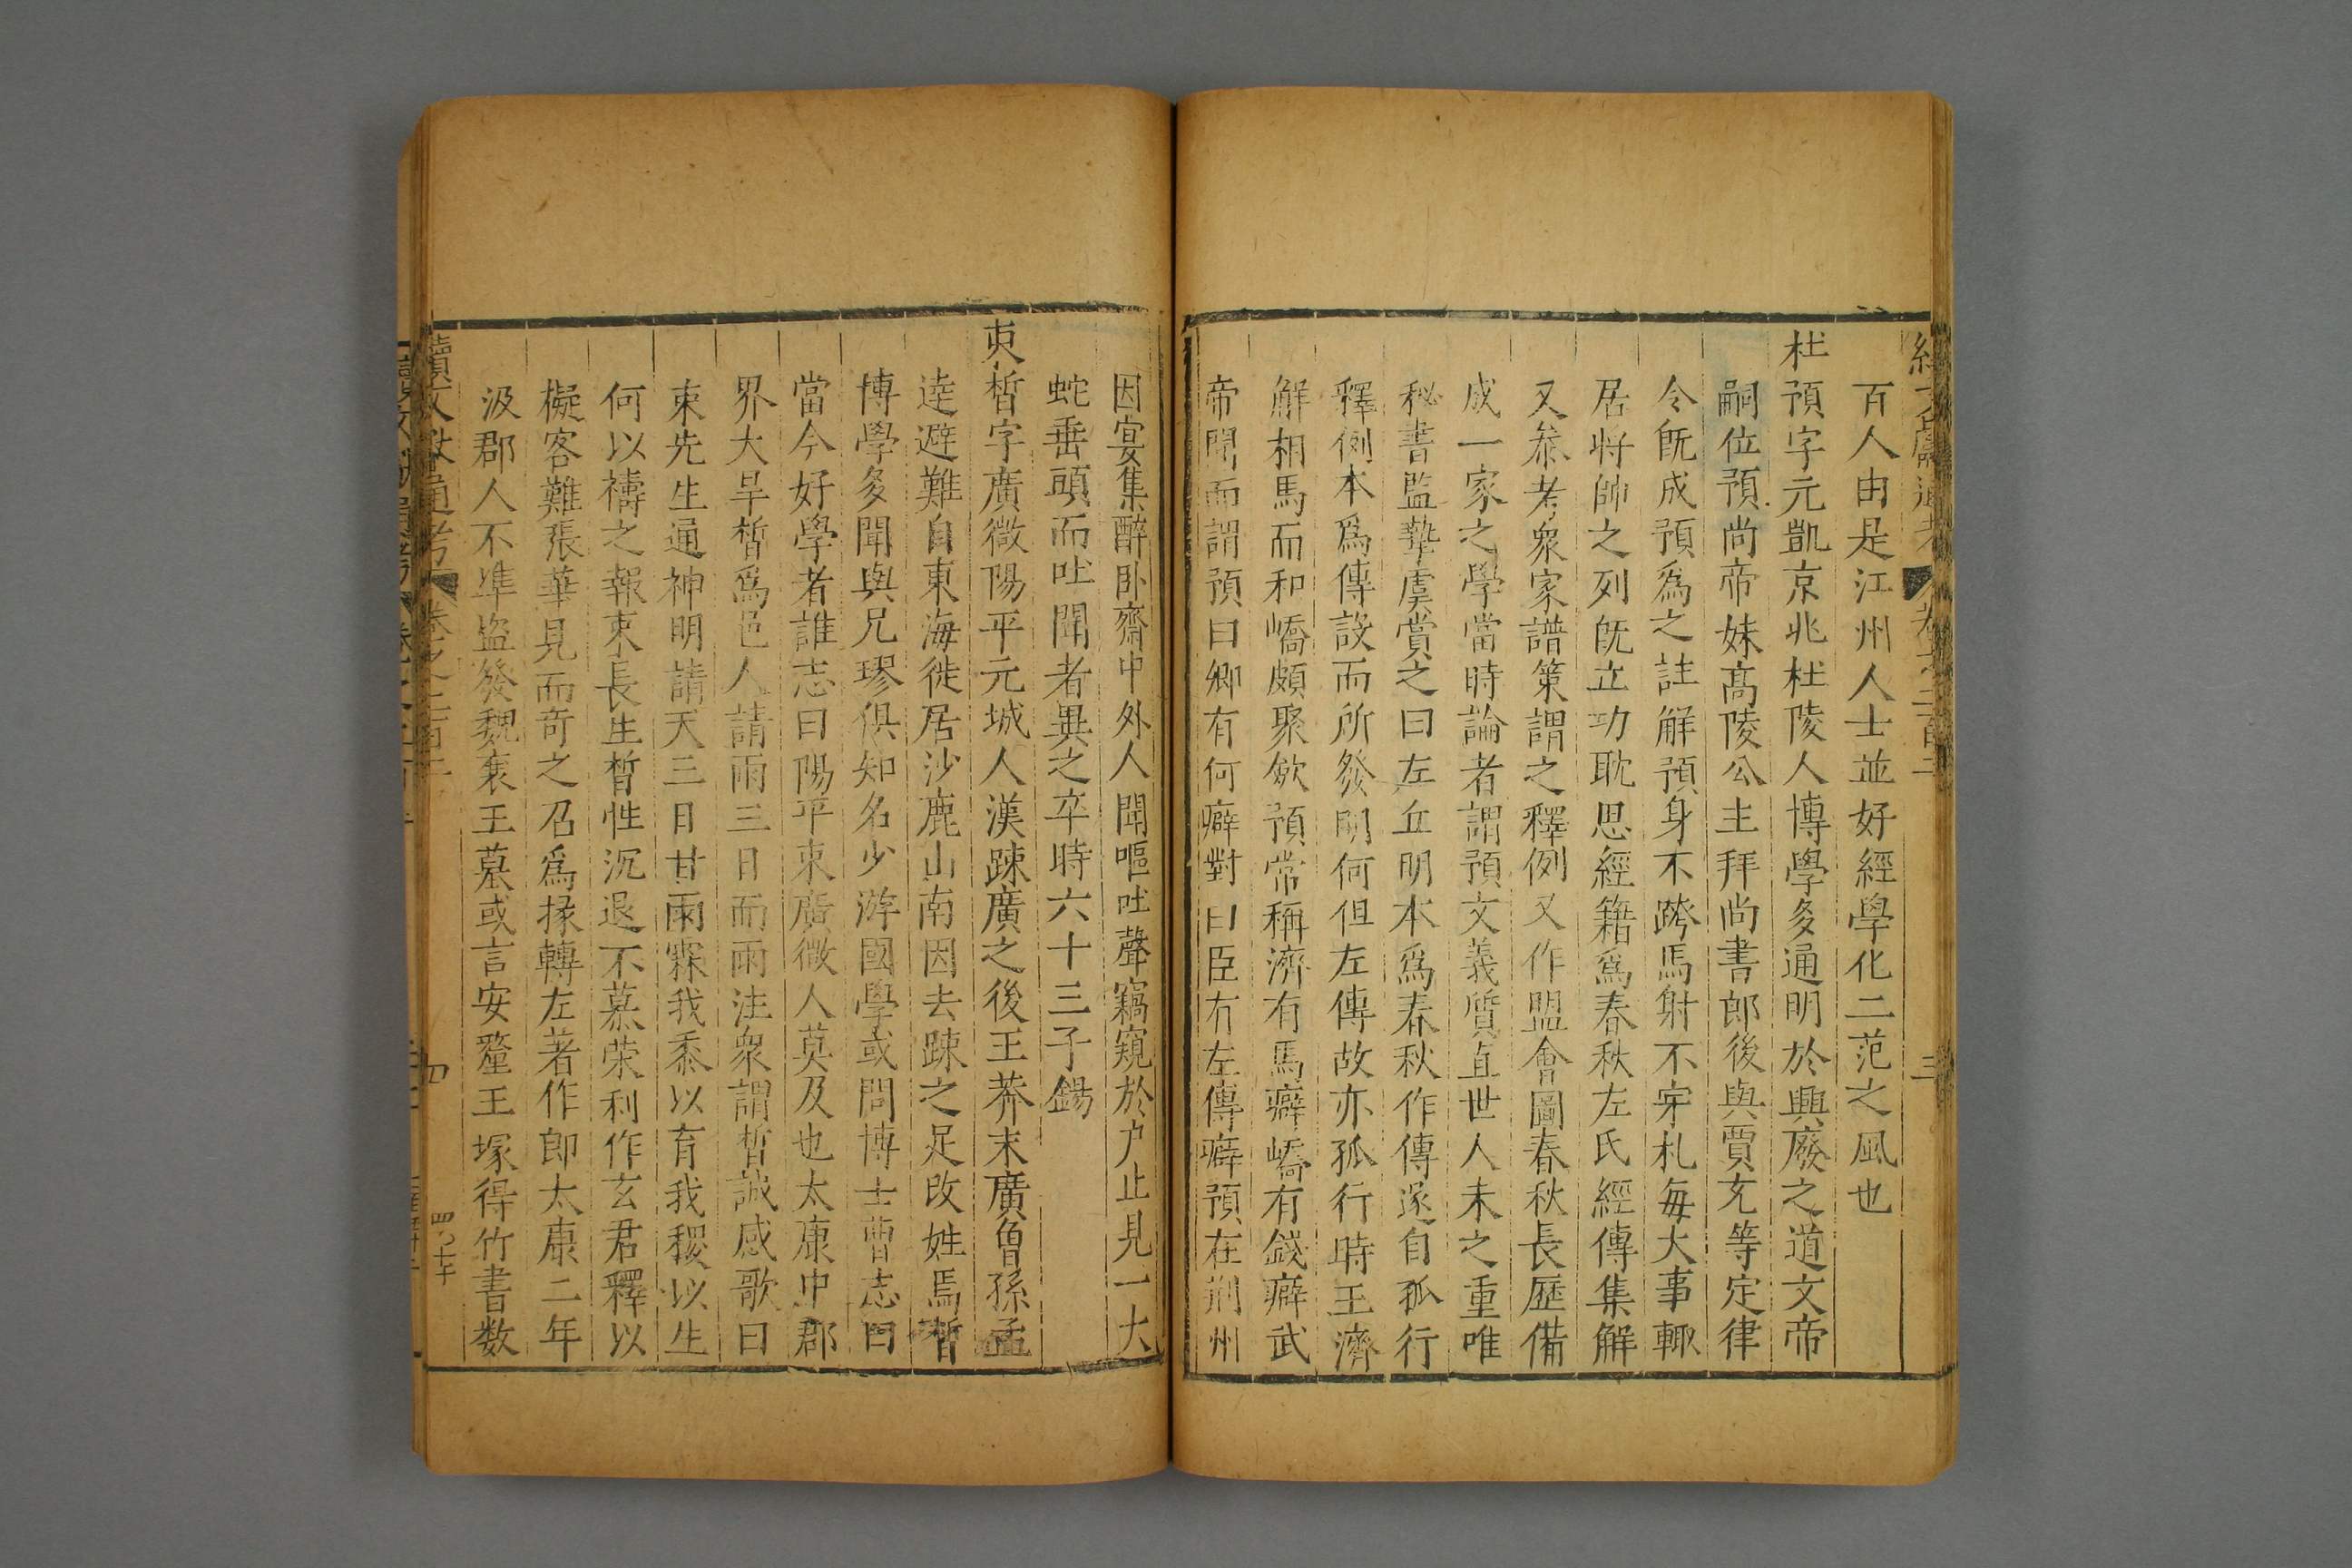 百人由是江州人士並好經學化二范之風也
杜預字元凱京兆杜陵人博學多通明於興廢之道文帝
嗣位預尚帝妹高陵公主拜尚書郎後與賈充等定律
令旣成預爲之註解預身不跨馬射不穿札每大事輙
居將帥之列旣立功耽思經籍爲春秋左氏經傳集解
又叅考衆家譜第謂之釋例又作盟會圖春秋長歷備
成一家之學當時論者謂預文義質直世人未之重唯
秘書監摯虞賞之曰左丘明本爲春秋作傳遂自孤行
釋例本爲傳設而所發明何但左傳故亦孤行時王濟
解相馬而和嶠頗聚斂預常稱濟有馬癖嶠有錢癖武
帝聞而謂預曰卿有何癖對曰臣有左傳癖預在荆州
因宴集醉卧齋中外人聞嘔吐聲竊窺於户止見一大
蛇垂頭而吐聞者異之卒時六十三子錫
束晳字廣微陽平元城人漢踈廣之後王莽末廣曾孫孟
逹避難自東海徙居沙鹿山南因去踈之足改姓焉晳
博學多聞與兄璆俱知名少游國學或問博士曹志曰
當今好學者誰志曰陽平束廣微人莫及也太康中郡
界大旱晳爲邑人請雨三日而雨注衆謂晳誠感歌曰
束先生通神明請天三日甘雨霖我黍以育我稷以生
何以禱之報束長生晳性沉退不慕荣利作玄君釋以
擬客難張華見而奇之召爲掾轉左著作郎太康二年
汲郡人不準盗發魏襄王墓或言安釐王塚得竹書数
續文獻通考 卷之二百二
四